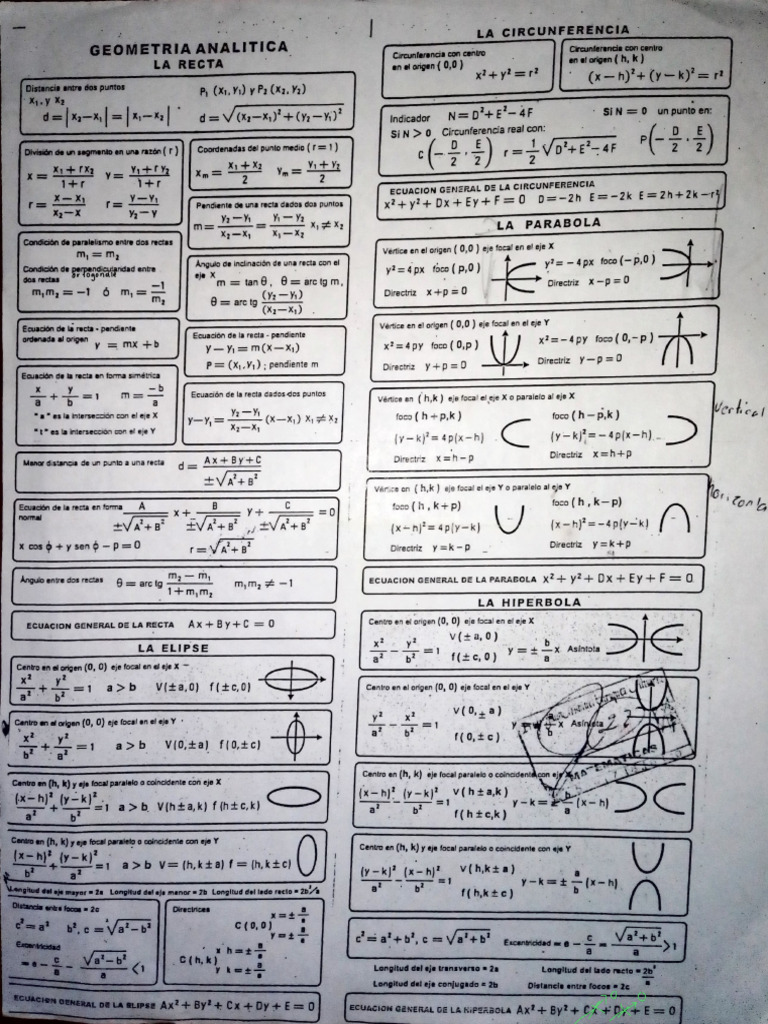 GEOMETRIA ANALITICA
LA RECTA
Distancia entre dos puntos
x₁, y x₂ P₁ (x₁, y₁) y P₂ (x₂, y₂)
d = |x₂ – x₁| = |x₁ – x₂| d = √((x₂ – x₁)² + (y₂ – y₁)²)
División de un segmento en una razón ( r )
x = (x₁ + r x₂)/(1 + r) y = (y₁ + r y₂)/(1 + r)
r = (x – x₁)/(x₂ – x) r = (y – y₁)/(y₂ – y)
Coordenadas del punto medio ( r = 1 )
xₘ = (x₁ + x₂)/2 yₘ = (y₁ + y₂)/2
Pendiente de una recta dados dos puntos
m = (y₂ – y₁)/(x₂ – x₁) = (y₁ – y₂)/(x₁ – x₂) x₁ ≠ x₂
Condición de paralelismo entre dos rectas
m₁ = m₂
Condición de perpendicularidad entre
dos rectas ortogonale
m₁m₂ = –1 ó m₁ = –1/m₂
Ángulo de inclinación de una recta con el
eje X
m = tan θ, θ = arc tg m,
θ = arc tg (y₂ – y₁)/(x₂ – x₁)
Ecuación de la recta - pendiente
ordenada al origen y = mx + b
Ecuación de la recta - pendiente
y – y₁ = m (x – x₁)
P = (x₁, y₁) ; pendiente m
Ecuación de la recta en forma simétrica
x/a + y/b = 1 m = –b/a
" a " es la intersección con el eje X
" 1 " es la intersección con el eje Y
Ecuación de la recta dados dos puntos
y – y₁ = (y₂ – y₁)/(x₂ – x₁) (x – x₁) x₁ ≠ x₂
Menor distancia de un punto a una recta d = (Ax + By + C)/(±√(A² + B²))
Ecuación de la recta en forma
normal A/(±√(A² + B²)) x + B/(±√(A² + B²)) y + C/(±√(A² + B²)) = 0
x cos ϕ + y sen ϕ – p = 0 r = √(A² + B²)
Ángulo entre dos rectas θ = arc tg (m₂ – m₁)/(1 + m₁m₂) m₁m₂ ≠ –1
ECUACION GENERAL DE LA RECTA Ax + By + C = 0
LA ELIPSE
Centro en el origen (0, 0) eje focal en el eje X
x²/a² + y²/b² = 1 a > b V(± a, 0) f (± c, 0)
Centro en el origen (0, 0) eje focal en el eje Y
x²/b² + y²/a² = 1 a > b V(0, ± a) f (0, ± c)
Centro en (h, k) y eje focal paralelo o coincidente con eje X
(x – h)²/a² + (y – k)²/b² = 1 a > b, V(h ± a, k) f (h ± c, k)
Centro en (h, k) y eje focal paralelo o coincidente con eje Y
(x – h)²/b² + (y – k)²/a² = 1 a > b V = (h, k ± a) f = (h, k ± c)
Longitud del eje mayor = 2a Longitud del eje menor = 2b Longitud del lado recto = 2b²/a
Distancia entre focos = 2c
c² = a² b², c = √(a² – b²)
Excentricidad
= e = c/a – √(a² – b²)/a < 1
Directrices
C (0, 0) x = ± a/e
y = ± a/e
C (h, k) x h = ± a/e
y k = ± a/e
ECUACION GENERAL DE LA ELIPSE Ax² + By² + Cx + Dy + E = 0
LA CIRCUNFERENCIA
Circunferencia con centro
en el origen ( 0,0 ) x² + y² = r²
Circunferencia con centro
en el origen ( h, k )
(x – h)² + (y – k)² = r²
Indicador N = D² + E² – 4F Si N = 0 un punto en:
Si N > 0 Circunferencia real con:
C (–D/2 , E/2) r = 1/2 √(D² + E² – 4F) P (–D/2 , E/2)
ECUACION GENERAL DE LA CIRCUNFERENCIA
x² + y² + Dx + Ey + F = 0 D = –2h E = –2k E = 2h + 2k – r²
LA PARABOLA
Vértice en el origen ( 0,0 ) eje focal en el eje X
y² = 4 px foco ( p,0 ) y² = – 4 px foco ( –p,0 )
Directriz x + p = 0 Directriz x – p = 0
Vértice en el origen ( 0,0 ) eje focal en el eje Y
x² = 4 py foco ( 0,p ) x² = – 4 py foco ( 0,–p )
Directriz y + p = 0 Directriz y – p = 0
Vértice en ( h,k ) eje focal el eje X o paralelo al eje X
foco ( h + p,k ) foco ( h – p,k )
(y – k)² = 4p(x – h) (y – k)² = – 4p(x – h)
Directriz x = h – p Directriz x = h + p
vertical
Vértice en ( h,k ) eje focal el eje Y o paralelo al eje Y
foco ( h , k + p ) foco ( h , k – p )
(x – h)² = 4p(y – k) (x – h)² = – 4p(y – k)
Directriz y = k – p Directriz y = k + p
ECUACION GENERAL DE LA PARABOLA x² + y² + Dx + Ey + F = 0
LA HIPERBOLA
Centro en el origen (0, 0) eje focal en el eje X
x²/a² – y²/b² = 1 V (± a, 0) f (± c, 0) y = ± b/a x Asíntota
Centro en el origen (0, 0) eje focal en el eje Y
y²/a² – x²/b² = 1 V ( 0, ± a ) f ( 0, ± c ) x Asíntota
MATEMATICAS
Centro en (h, k) eje focal paralelo o coincidente con eje
(x – h)²/a² – (y – k)²/b² = 1 V ( h ± a,k ) f ( h ± c,k ) y – k = ± b/a (x – h)
Centro en (h, k) y eje focal paralelo o coincidente con eje Y
(y – k)²/a² – (x – h)²/b² = 1 V ( h, k ± a ) f ( h, k ± c ) y – k = ± a/b (x – h)
c² = a² + b², c = √(a² + b²) Excentricidad = e – c/a = √(a² + b²)/a > 1
Longitud del eje transverso = 2a Longitud del lado recto = 2b²/a
Longitud del eje conjugado = 2b Distancia entre focos = 2c
ECUACION GENERAL DE LA HIPERBOLA Ax² + By² + Cx + Dy + E = 0